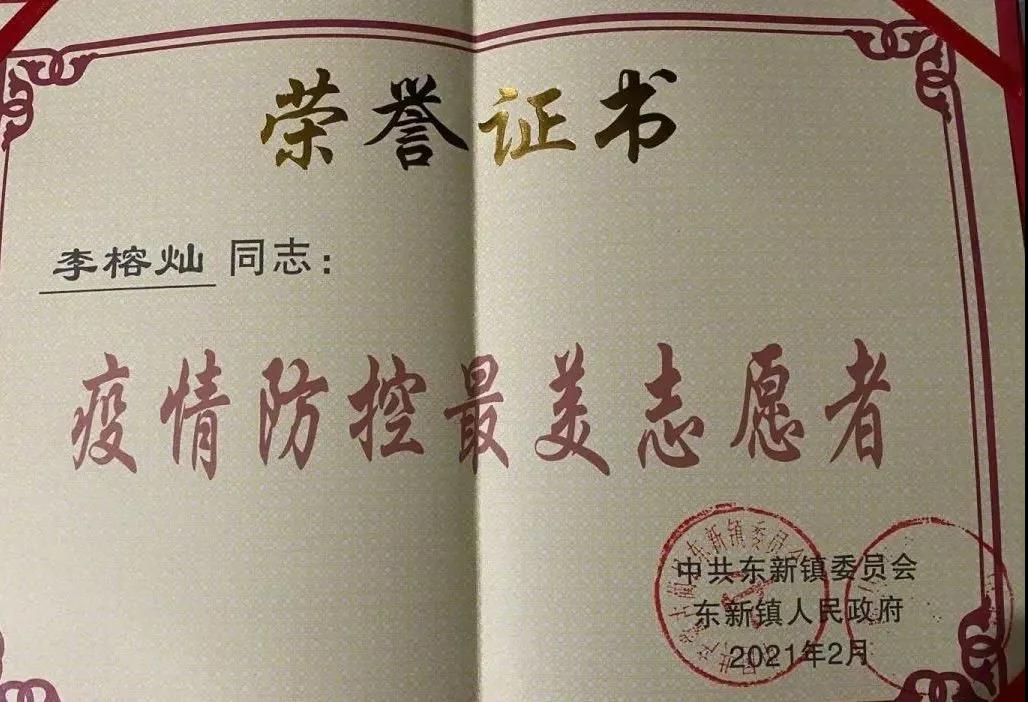 荣誉证书
李榕灿 同志：
疫情防控最美志愿者
中共东新镇委员会
东新镇人民政府
2021年2月